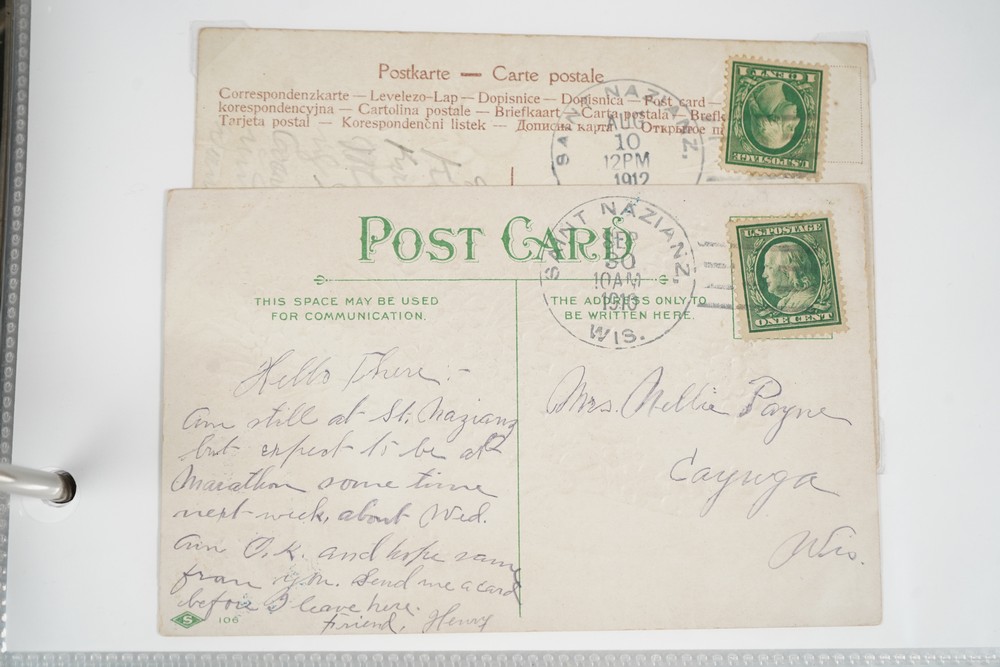 Postkarte — Carte postale
Correspondenzkarte — Levelezo-Lap — Dopisnice — Dopisnica — Post card —
korespondencyjna — Cartolina postale — Briefkaart — Carta postala — Brefk
Tarjeta postal — Korespondenční listek — Дописна карта — Открытое п
SAINT NAZIANZ,
AUG
10
12PM
1912
1 CENT 1
U.S. POSTAGE
POST CARD
SAINT NAZIANZ,
SEP
30
10AM
1910
WIS.
U.S. POSTAGE
ONE CENT
THIS SPACE MAY BE USED
FOR COMMUNICATION.
THE ADDRESS ONLY TO
BE WRITTEN HERE.
Hello There:-
am still at St. Nazianz
but expect to be at
Marathon some time
next week, about Wed.
am O.K. and hope same
from you. Send me a card
before I leave here.
Friend, Henry
Mrs. Nellie Payne
Cayuga
Wis.
S 106